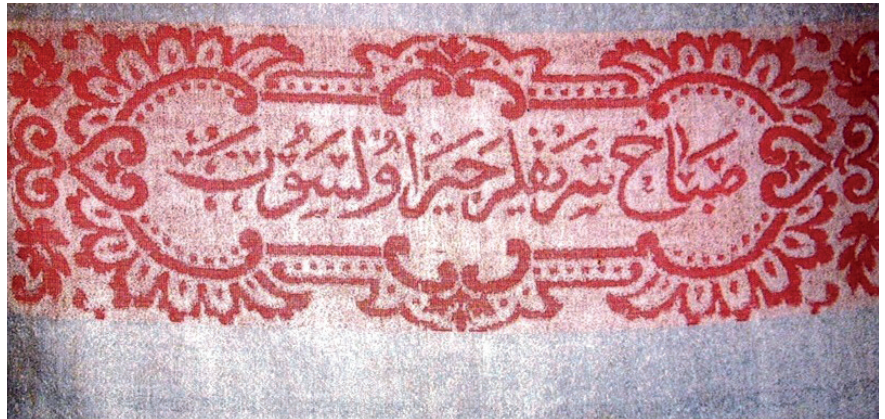 صَبَاحْ شَرِيفْلَرْ خَيْرْ اوُلْسُونْ